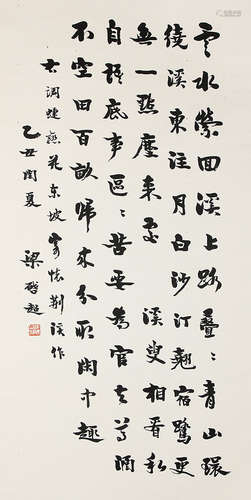 雲水縈回溪上路疊:青山環
繞溪東注月白沙汀翹宿鷺更
無一點塵來處 溪叟相看私
自語底事區:苦要為官去尊酒
不空田百畝歸來分取閑中趣
右調蝶戀花東坡懷荆溪作
乙丑閏夏 梁啟超